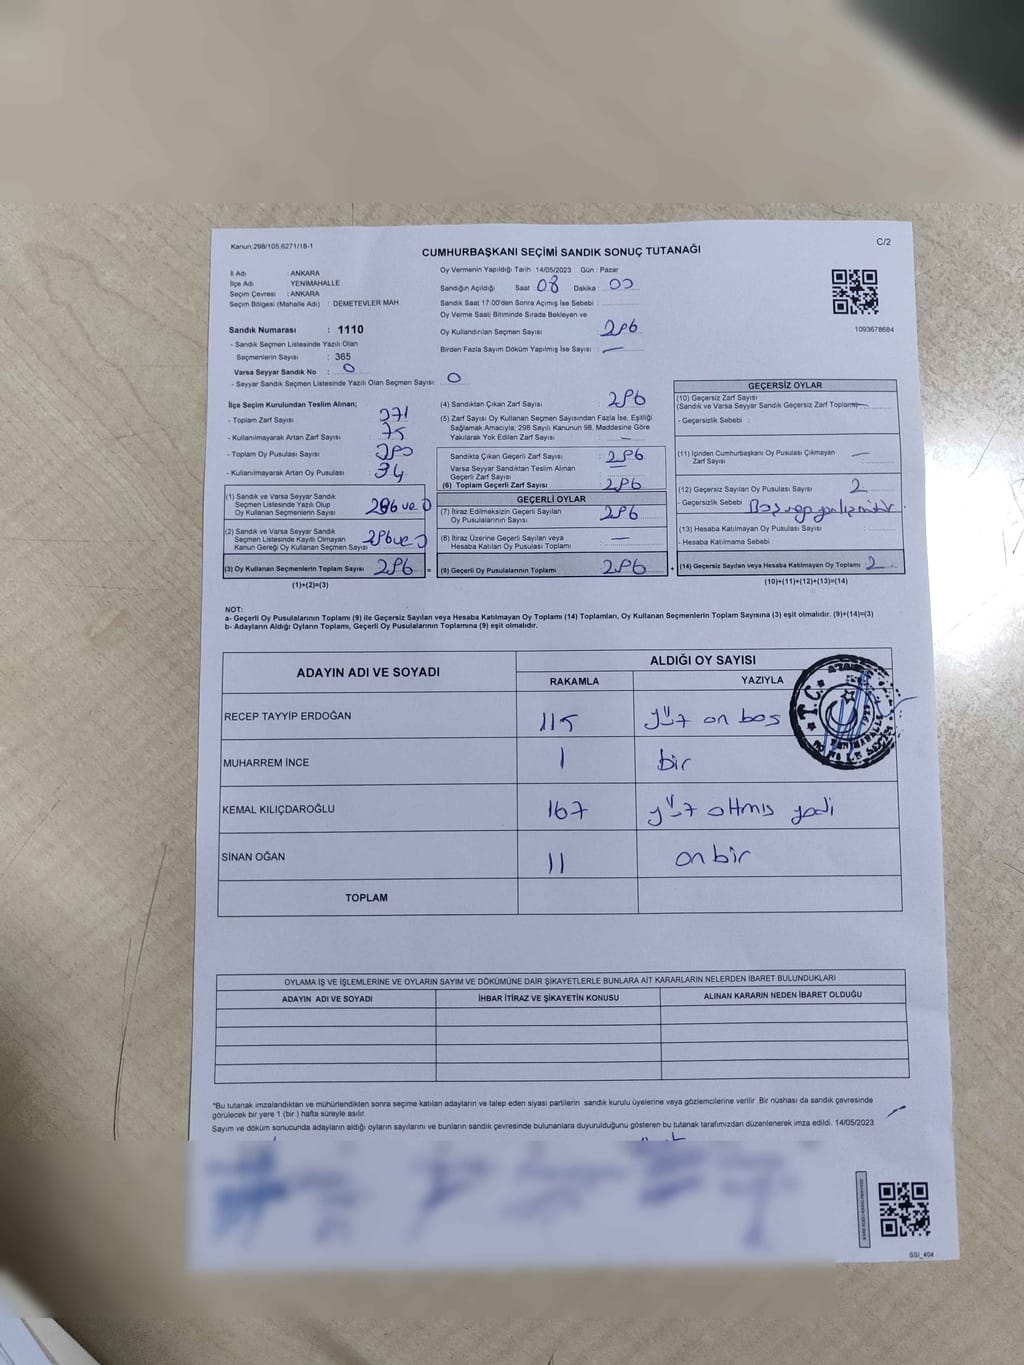 Kanun;298/105;6271/18-1
C/2
CUMHURBAŞKANI SEÇİMİ SANDIK SONUÇ TUTANAĞI
İl Adı : ANKARA
İlçe Adı : YENİMAHALLE
Seçim Çevresi : ANKARA
Seçim Bölgesi (Mahalle Adı) : DEMETEVLER MAH.
Sandık Numarası : 1110
- Sandık Seçmen Listesinde Yazılı Olan
Seçmenlerin Sayısı : 365
Varsa Seyyar Sandık No : 0
- Seyyar Sandık Seçmen Listesinde Yazılı Olan Seçmen Sayısı: 0
Oy Vermenin Yapıldığı Tarih : 14/05/2023 Gün : Pazar
Sandığın Açıldığı Saat 08 Dakika : 00
Sandık Saat 17:00'den Sonra Açılmış İse Sebebi :
Oy Verme Saati Bitiminde Sırada Bekleyen ve
Oy Kullandırılan Seçmen Sayısı 286
Birden Fazla Sayım Döküm Yapılmış İse Sayısı : —
1093678684
İlçe Seçim Kurulundan Teslim Alınan;
- Toplam Zarf Sayısı : 371
- Kullanılmayarak Artan Zarf Sayısı : 75
- Toplam Oy Pusulası Sayısı :
- Kullanılmayarak Artan Oy Pusulası : 94
(1) Sandık ve Varsa Seyyar Sandık
Seçmen Listesinde Yazılı Olup
Oy Kullanan Seçmenlerin Sayısı : 286 ve 0
(2) Sandık ve Varsa Seyyar Sandık
Seçmen Listesinde Kayıtlı Olmayan
Kanun Gereği Oy Kullanan Seçmen Sayısı : 286 ve 0
(3) Oy Kullanan Seçmenlerin Toplam Sayısı 286 =
(1)+(2)=(3)
(4) Sandıktan Çıkan Zarf Sayısı 286
(5) Zarf Sayısı Oy Kullanan Seçmen Sayısından Fazla İse, Eşitliği
Sağlamak Amacıyla; 298 Sayılı Kanunun 98. Maddesine Göre
Yakılarak Yok Edilen Zarf Sayısı : —
Sandıkta Çıkan Geçerli Zarf Sayısı : 286
Varsa Seyyar Sandıktan Teslim Alınan
Geçerli Zarf Sayısı —
(6) Toplam Geçerli Zarf Sayısı : 286
GEÇERLİ OYLAR
(7) İtiraz Edilmeksizin Geçerli Sayılan
Oy Pusulalarının Sayısı : 286
(8) İtiraz Üzerine Geçerli Sayılan veya
Hesaba Katılan Oy Pusulası Toplamı —
(9) Geçerli Oy Pusulalarının Toplamı 286 +
GEÇERSİZ OYLAR
(10) Geçersiz Zarf Sayısı
(Sandık ve Varsa Seyyar Sandık Geçersiz Zarf Toplamı) —
- Geçersizlik Sebebi :
(11) İçinden Cumhurbaşkanı Oy Pusulası Çıkmayan
Zarf Sayısı : —
(12) Geçersiz Sayılan Oy Pusulası Sayısı : 2
- Geçersizlik Sebebi :
(13) Hesaba Katılmayan Oy Pusulası Sayısı :
- Hesaba Katılmama Sebebi :
(14) Geçersiz Sayılan veya Hesaba Katılmayan Oy Toplamı 2
(10)+(11)+(12)+(13)=(14)
NOT:
a- Geçerli Oy Pusulalarının Toplamı (9) ile Geçersiz Sayılan veya Hesaba Katılmayan Oy Toplamı (14) Toplamları, Oy Kullanan Seçmenlerin Toplam Sayısına (3) eşit olmalıdır. (9)+(14)=(3)
b- Adayların Aldığı Oyların Toplamı, Geçerli Oy Pusulalarının Toplamına (9) eşit olmalıdır.
ADAYIN ADI VE SOYADI
ALDIĞI OY SAYISI
RAKAMLA YAZIYLA
RECEP TAYYİP ERDOĞAN 115 yüz on beş
MUHARREM İNCE 1 bir
KEMAL KILIÇDAROĞLU 167 yüz altmış yedi
SİNAN OĞAN 11 on bir
TOPLAM
T.C.
OYLAMA İŞ VE İŞLEMLERİNE VE OYLARIN SAYIM VE DÖKÜMÜNE DAİR ŞİKAYETLERLE BUNLARA AİT KARARLARIN NELERDEN İBARET BULUNDUKLARI
ADAYIN ADI VE SOYADI İHBAR İTİRAZ VE ŞİKAYETİN KONUSU ALINAN KARARIN NEDEN İBARET OLDUĞU
*Bu tutanak imzalandıktan ve mühürlendikten sonra seçime katılan adayların ve talep eden siyasi partilerin sandık kurulu üyelerine veya gözlemcilerine verilir .Bir nüshası da sandık çevresinde
görülecek bir yere 1 (bir ) hafta süreyle asılır.
Sayım ve döküm sonucunda adayların aldığı oyların sayılarını ve bunların sandık çevresinde bulunanlara duyurulduğunu gösteren bu tutanak tarafımızdan düzenlenerek imza edildi. 14/05/2023
SSI_404